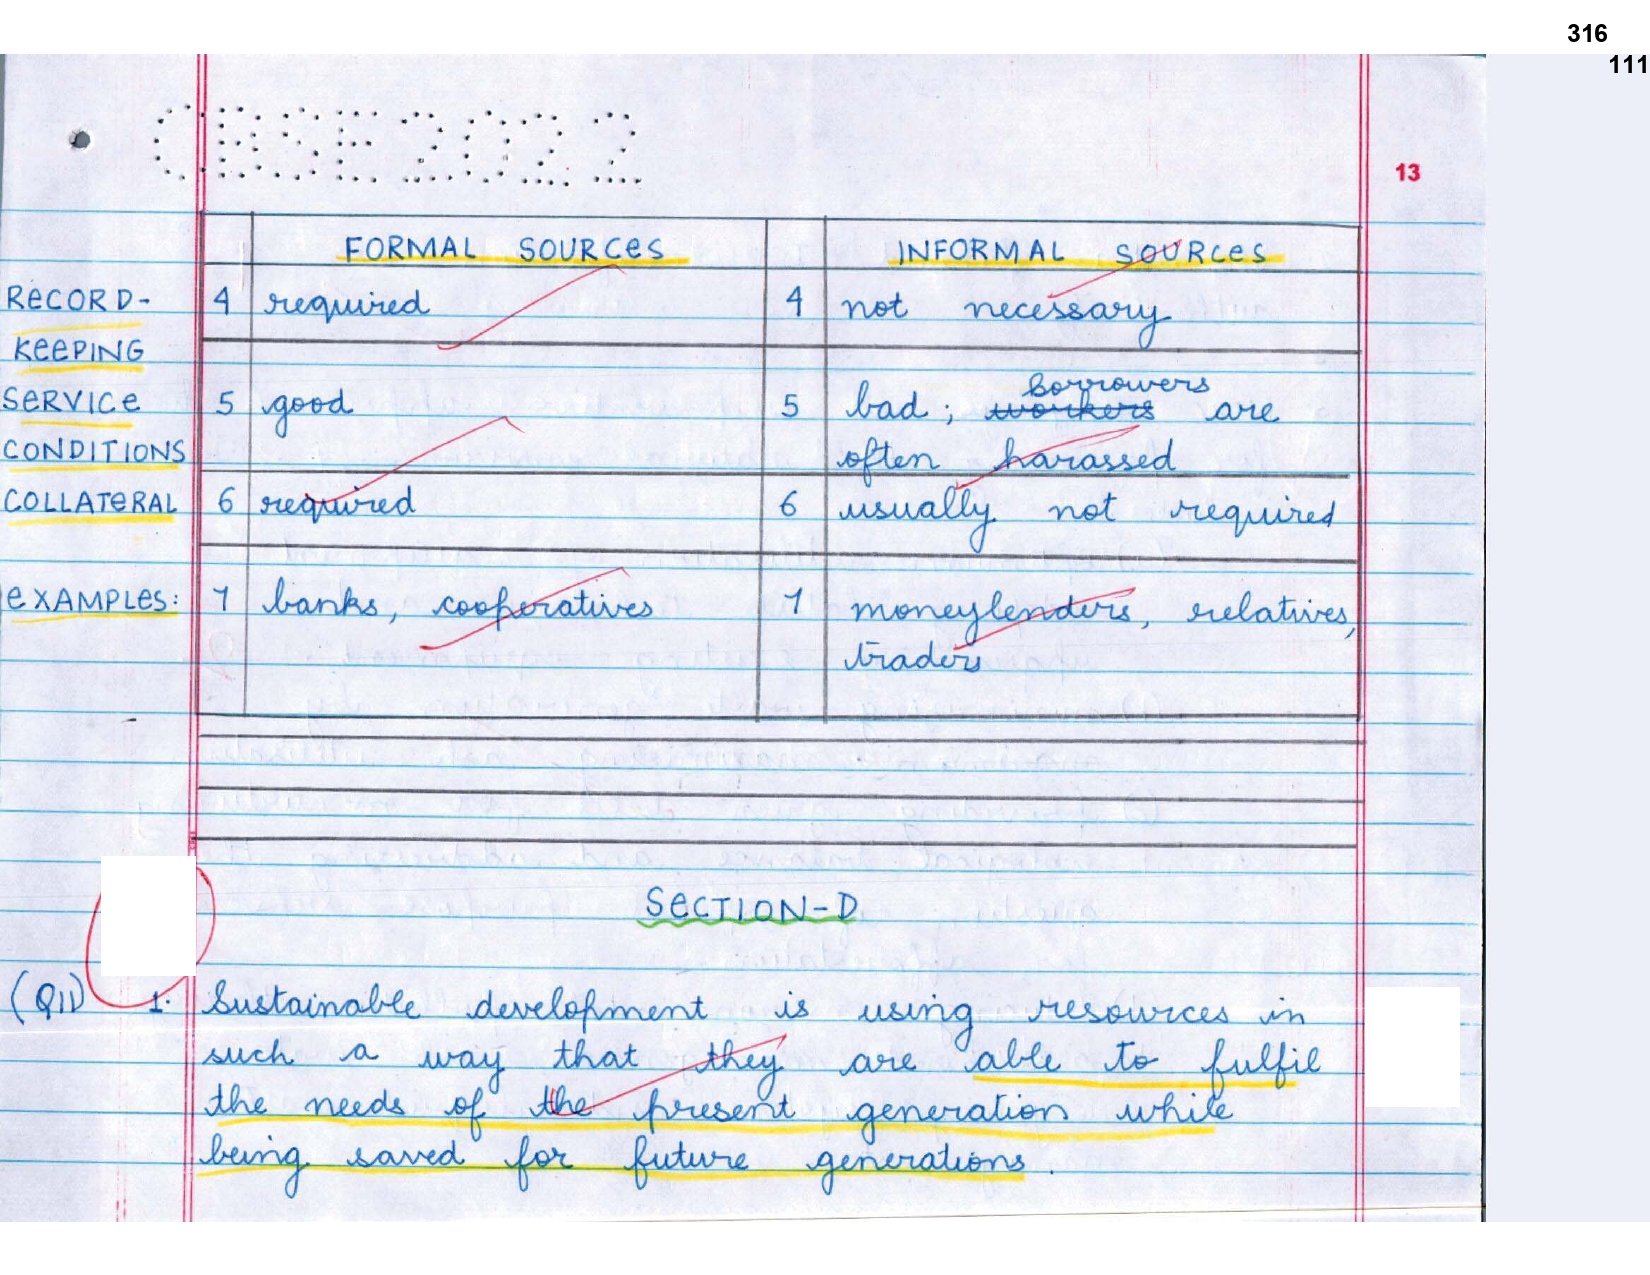 316
111
CBSE2022
13
FORMAL SOURCES INFORMAL SOURCES
RECORD- 4 required 4 not necessary
KEEPING
SERVICE 5 good 5 bad; workers borrowers are
CONDITIONS often harassed
COLLATERAL 6 required 6 usually not required
EXAMPLES: 7 banks, cooperatives 7 moneylenders, relatives,
traders
SECTION-D
(Q11) 1. Sustainable development is using resources in
such a way that they are able to fulfil
the needs of the present generation while
being saved for future generations.